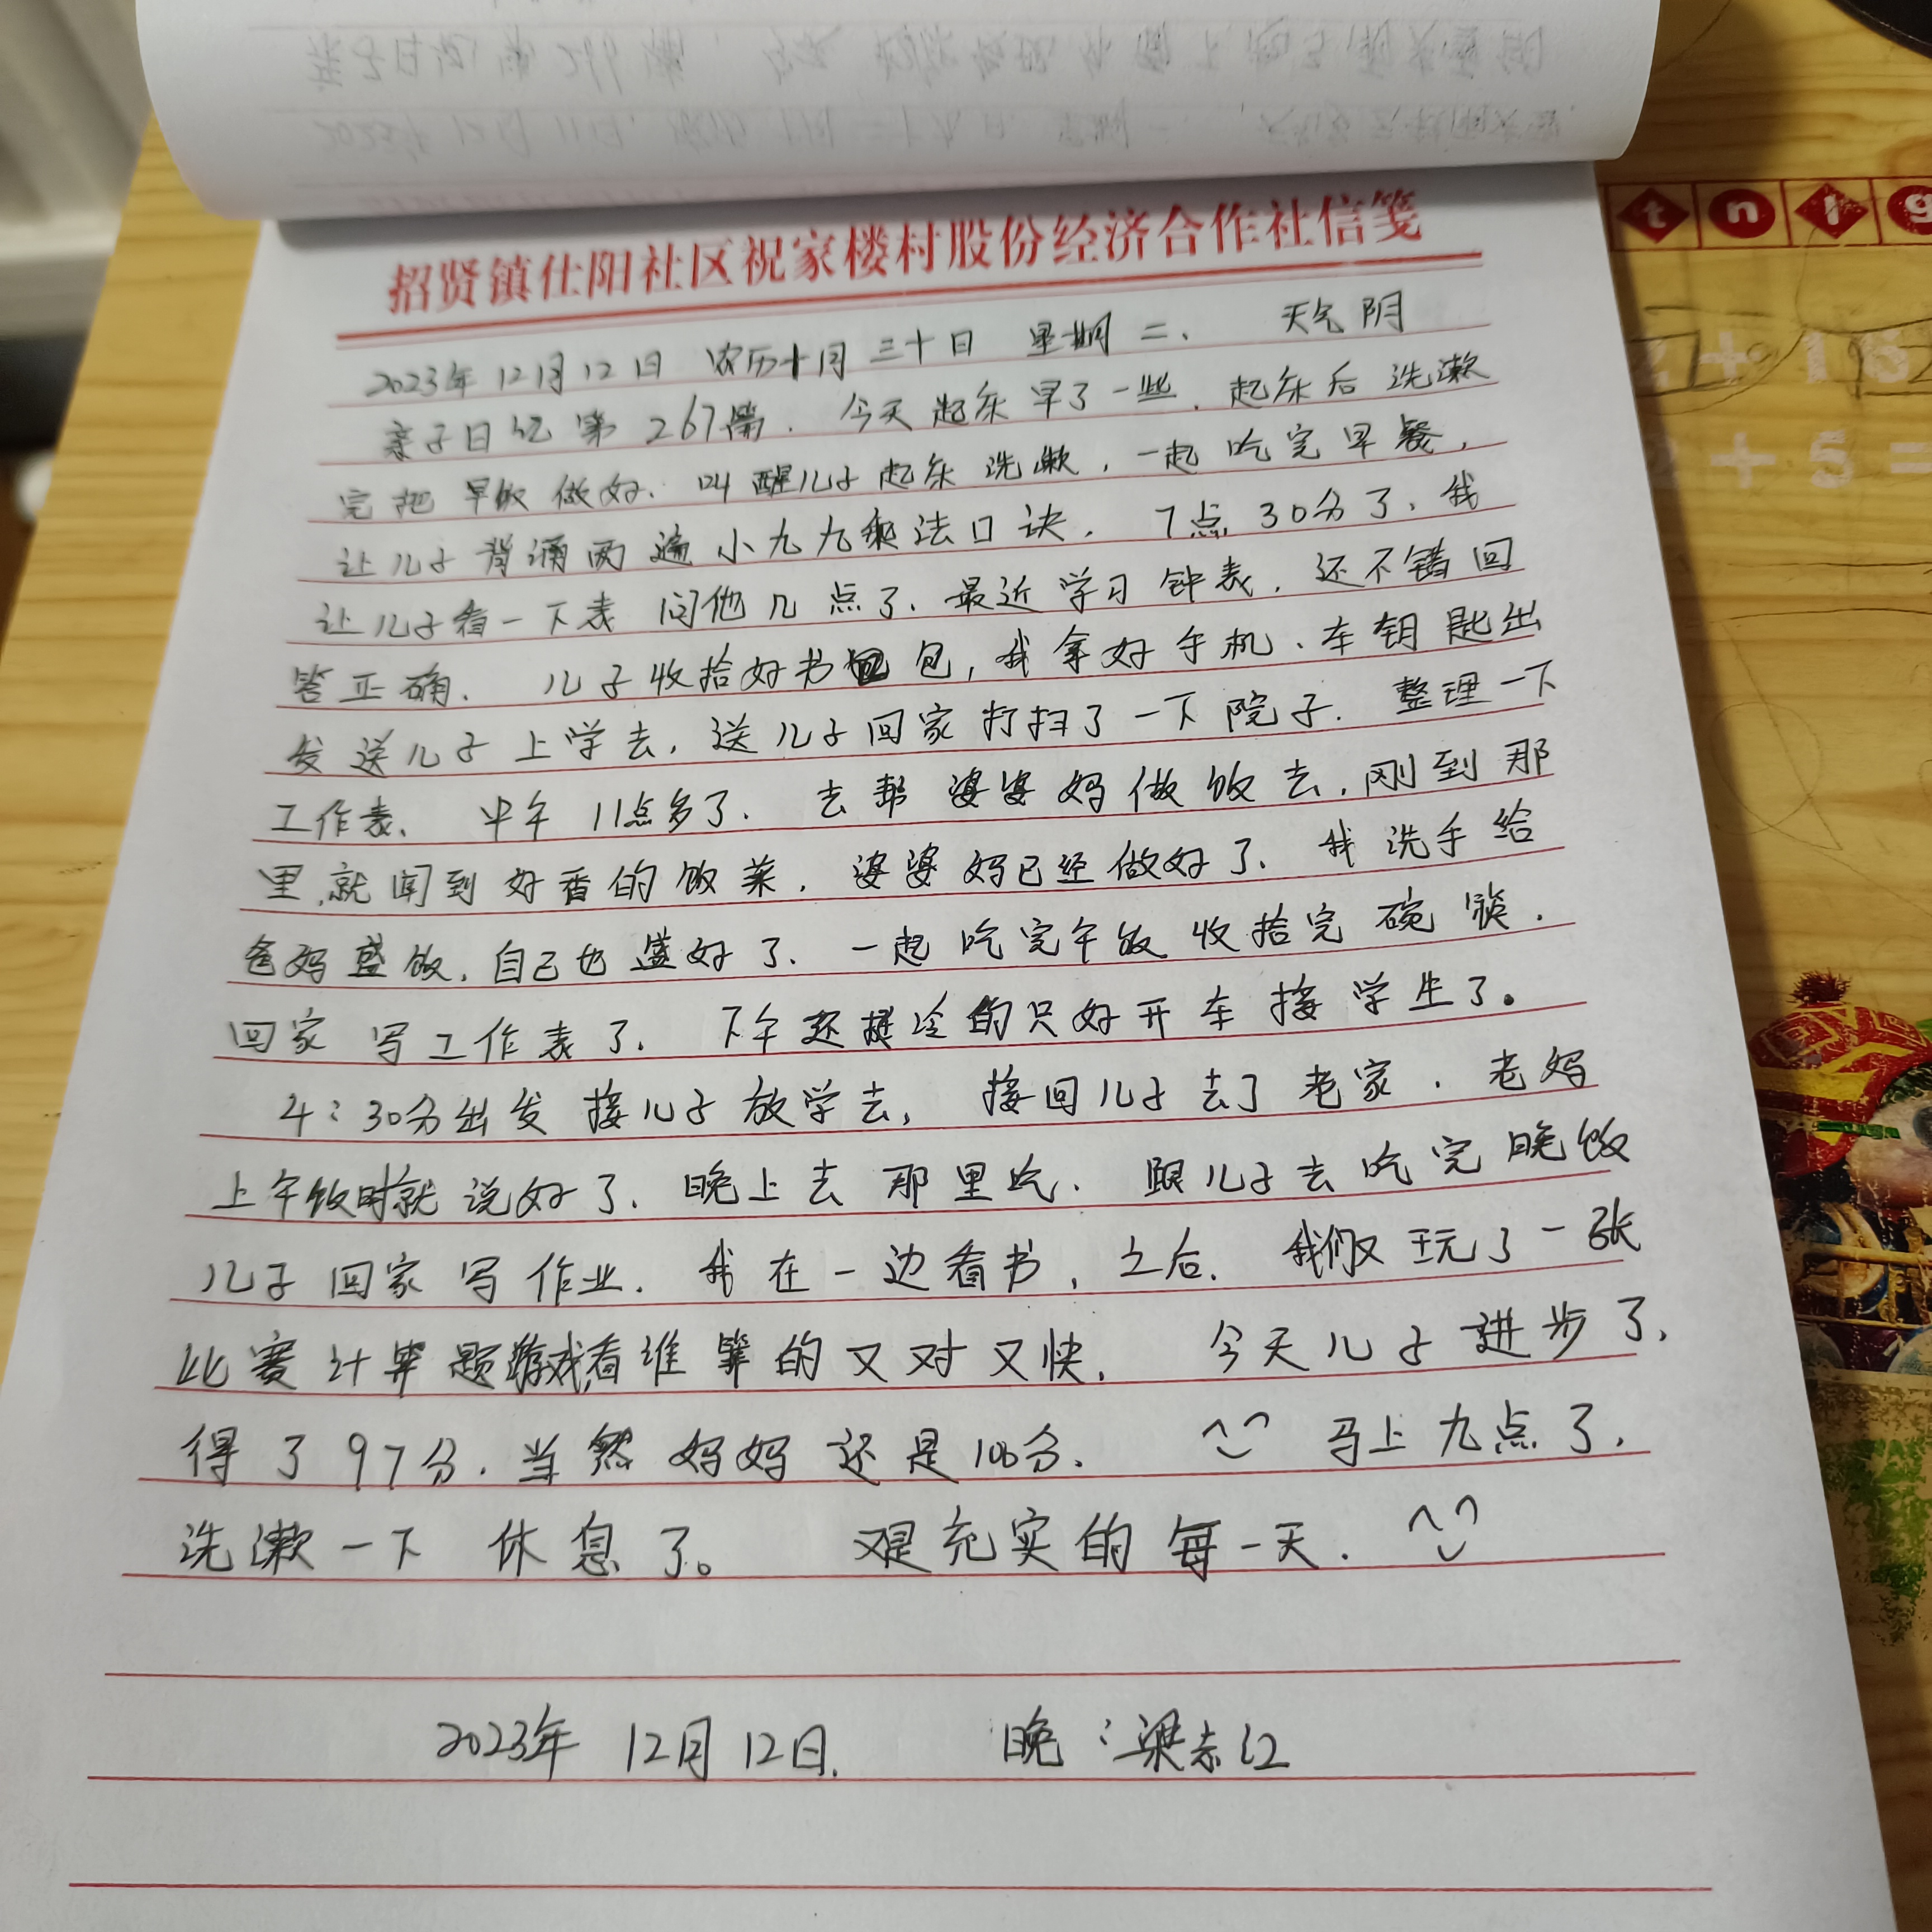 招贤镇仕阳社区祝家楼村股份经济合作社信笺
2023年12月12日 农历十月三十日 星期二、 天气阴
亲子日记第267篇. 今天起床早了一些. 起床后洗漱
完把早饭做好. 叫醒儿子起床洗漱, 一起吃完早餐,
让儿子背诵两遍小九九乘法口诀. 7点30分了、我
让儿子看一下表问他几点了. 最近学习钟表. 还不错回
答正确. 儿子收拾好书包, 我拿好手机、车钥匙出
发送儿子上学去, 送儿子回家打扫了一下院子. 整理一下
工作表、 中午11点多了. 去帮婆婆妈做饭去, 刚到那
里,就闻到好香的饭菜. 婆婆妈已经做好了. 我洗手给
爸妈盛饭, 自己也盛好了. 一起吃完午饭收拾完碗筷.
回家写工作表了. 下午还挺冷的只好开车接学生了。
4:30分出发接儿子放学去, 接回儿子去了老家. 老妈
上午饭时就说好了. 晚上去那里吃. 跟儿子去吃完晚饭
儿子回家写作业. 我在一边看书, 之后. 我们又玩了一张
比赛计算题游戏,看谁算的又对又快. 今天儿子进步了,
得了97分. 当然妈妈还是100分. 马上九点了.
洗漱一下 休息了。 又是充实的每一天.
2023年 12月12日. 晚:梁
t n g
+ 1
+ 5 =